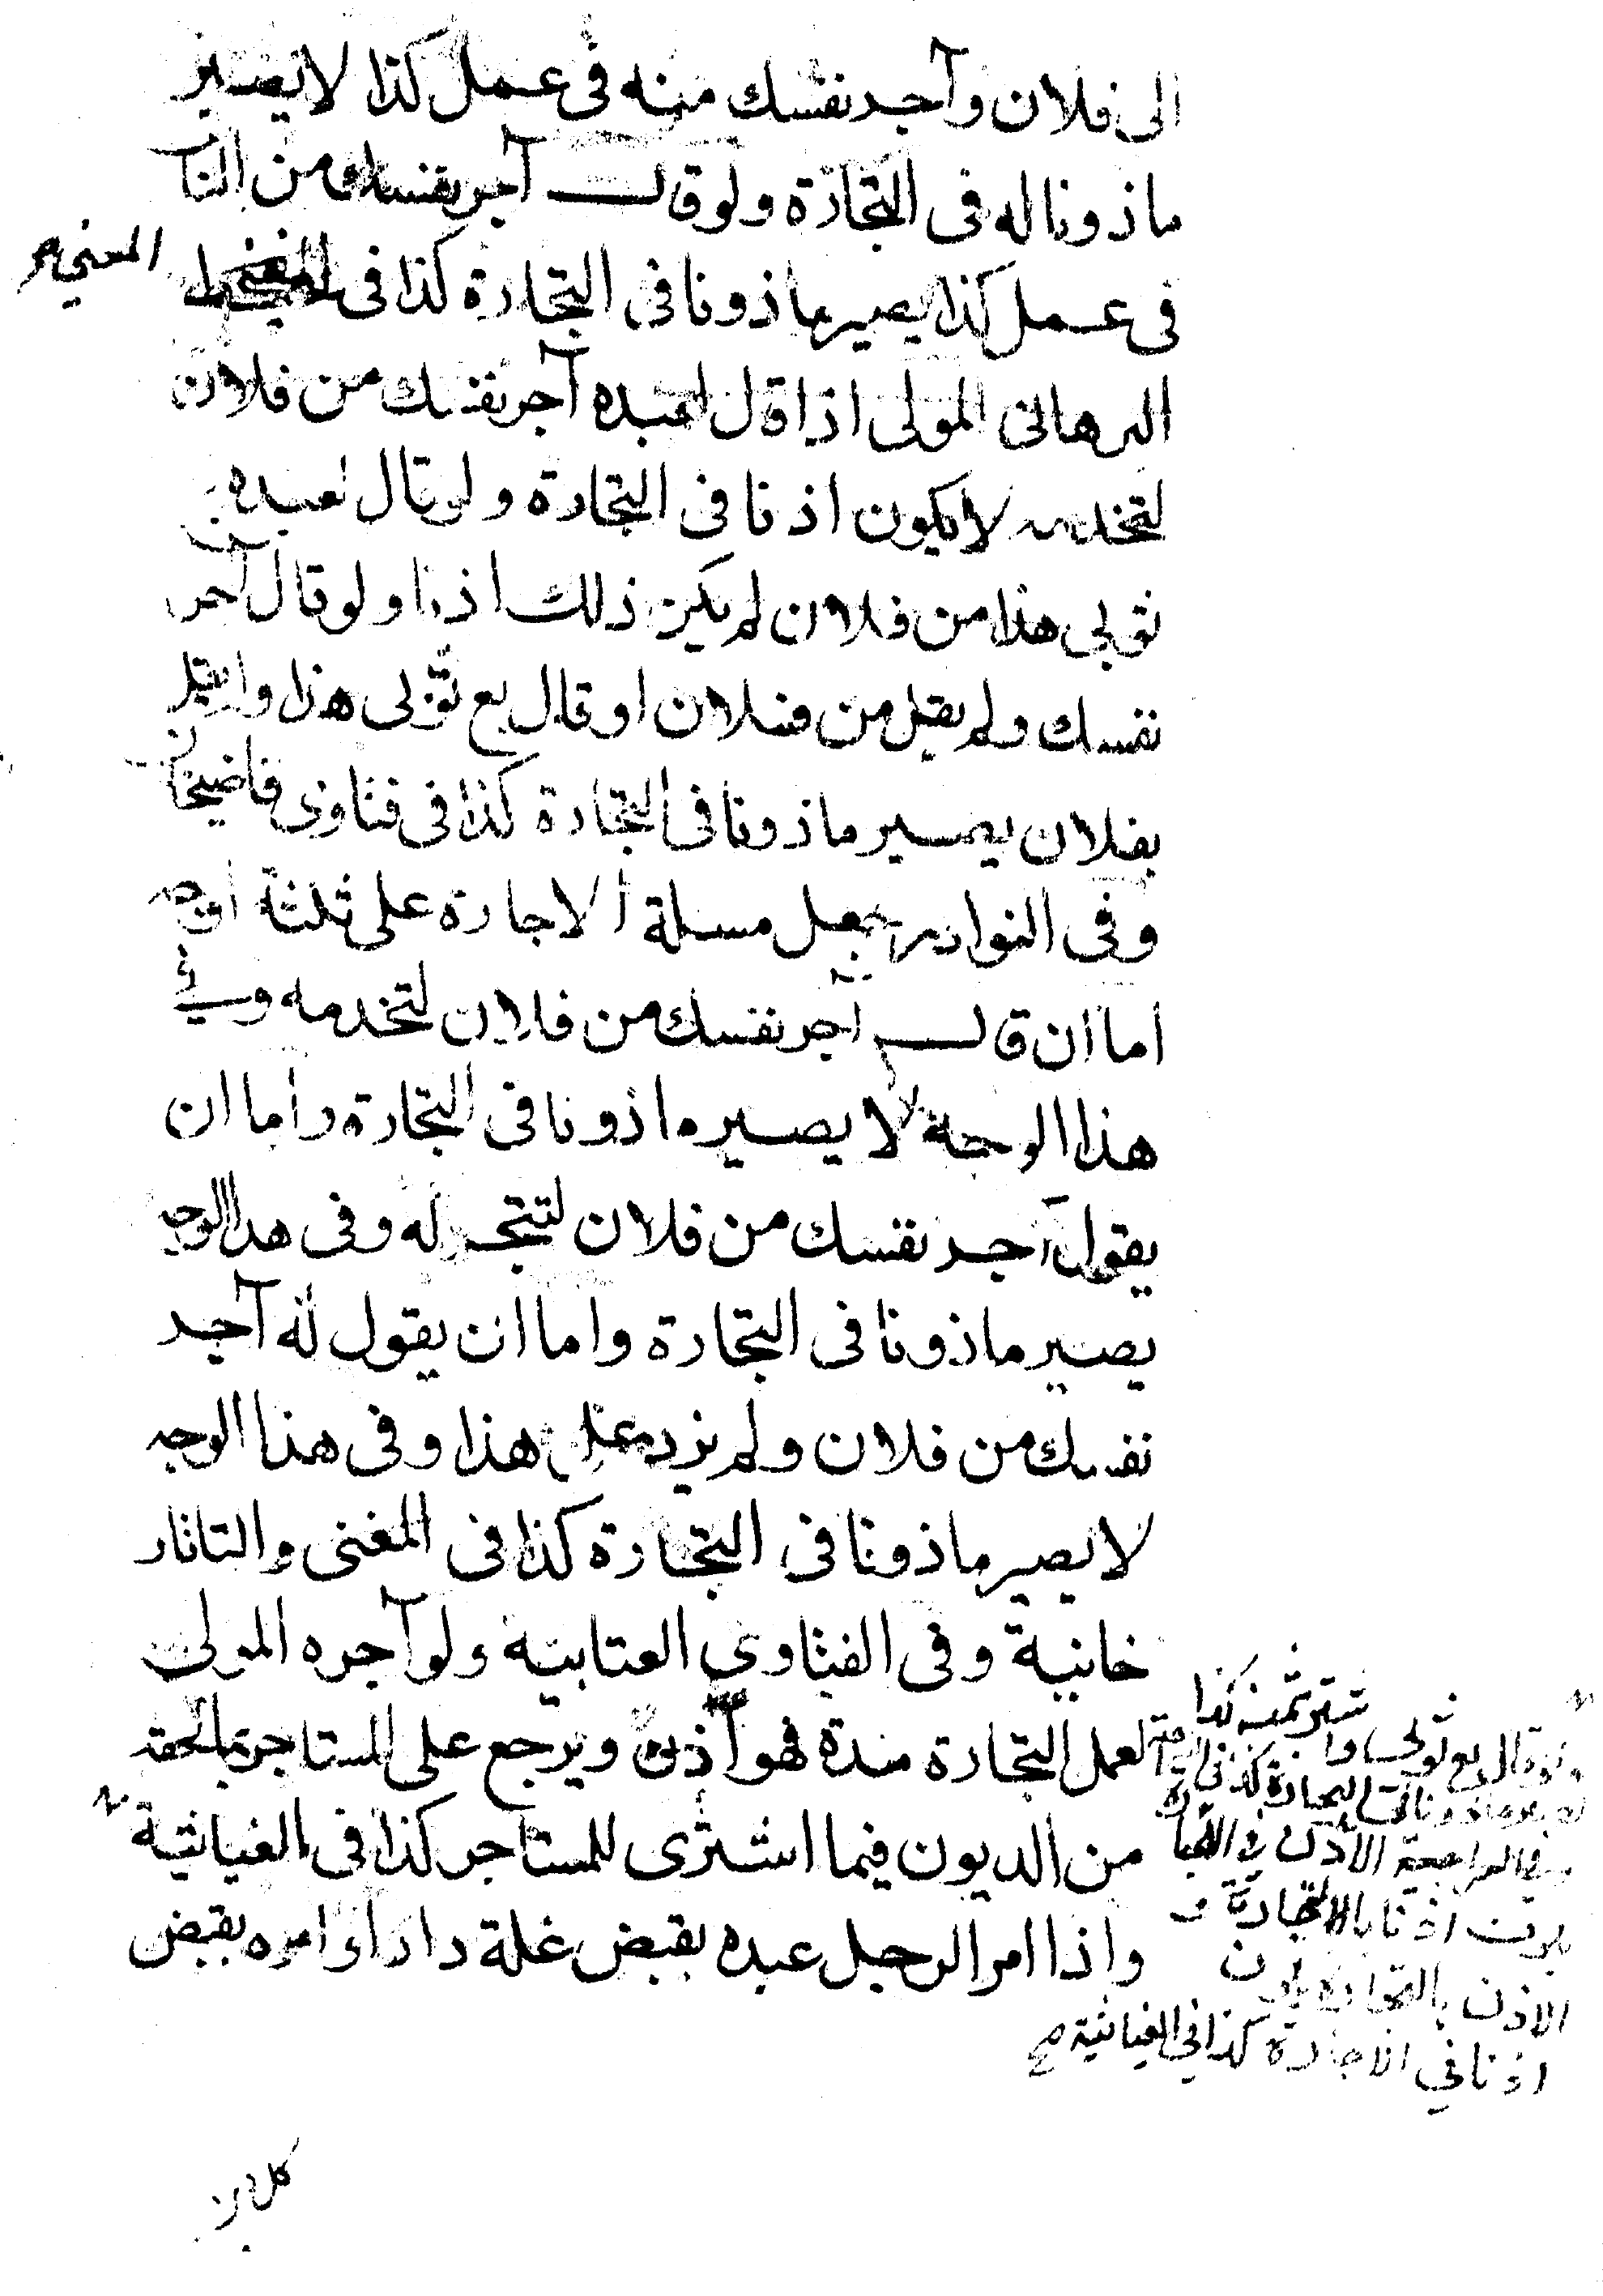 الى فلان وآجر نفسك منه فى عمل كذا لا يصير
ماذونا له فى التجارة ولو قال آجر نفسك من الناس
فى عمل كذا يصير ماذونا فى التجارة كذا فى
المحيط
البرهانى المولى اذا قال لعبده آجر نفسك من فلان
لتخدمه لا يكون اذنا فى التجارة ولو قال لعبده بع
ثوبى هذا من فلان لم يكن ذلك اذنا ولو قال آجر
نفسك ولم يقل من فلان او قال بع ثوبى هذا
بفلان يصير ماذونا فى التجارة كذا فى فتاوى قاضيخان
وفى النوادر جعل مسلة الاجارة على ثلثة اوجه
اما ان قال آجر نفسك من فلان لتخدمه وفي
هذا الوجه لا يصير ماذونا فى التجارة واما ان
يقول آجر نفسك من فلان لتتجر له وفى هذا الوجه
يصير ماذونا فى التجارة واما ان يقول له آجر
نفسك من فلان ولم يزد على هذا وفى هذا الوجه
لا يصير ماذونا فى التجارة كذا فى المغنى والتاتار
خانية وفى الفتاوي العتابية ولو آجره المولى
لعمل التجارة مدة فهو اذن ويرجع على المستاجر بما لحقه
من الديون فيما اشترى للمستاجر كذا فى الغياثية
واذا امر الرجل عبده بقبض غلة دار او امره بقبض
ولو قال بع ثوبي
بثمنه كذا
ماذونا في التجارة كذا في
السراجية الاذن في
اذنا بالتجارة و
الاذن بالتجارة يكون
اذنا في الاجارة كذا في الغياثية صح
كل